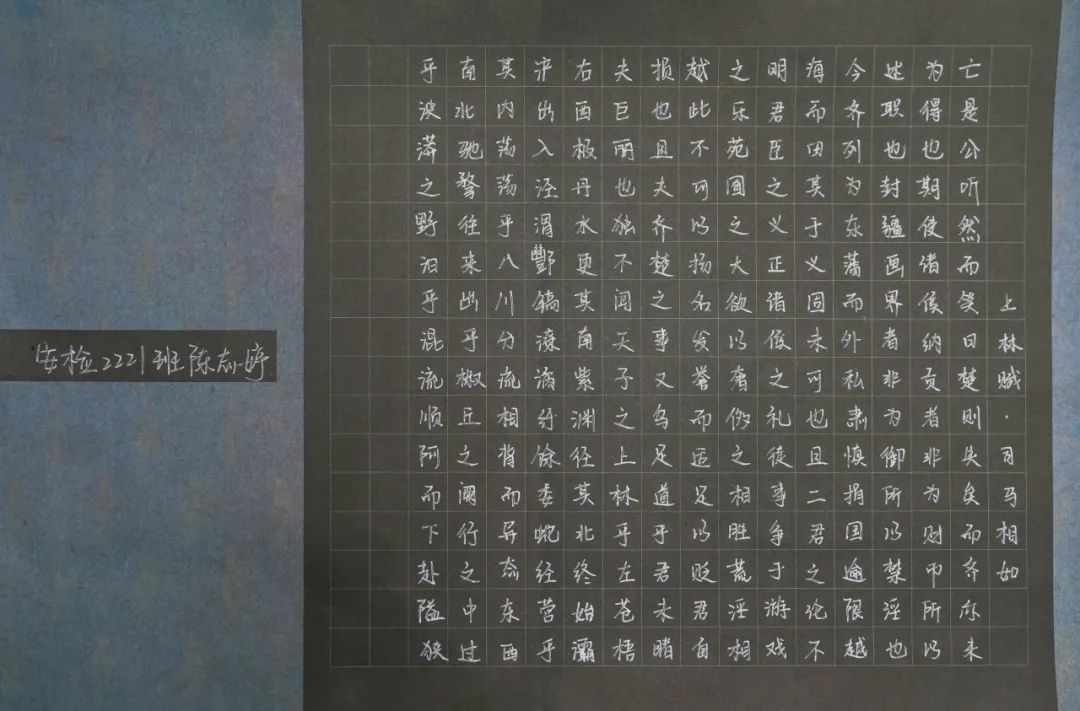 上林赋·司马相如
亡是公听然而笑曰楚则失矣而齐亦未
为得也期使诸侯纳贡者非为财币所以
述职也封疆画界者非为御所以禁淫也
今齐列为东藩而外私肃慎捐国逾限越
海而田其于义固未可也且二君之论不
明君臣之义正诸侯之礼徒事争于游戏
之乐苑囿之大欲以奢侈之相胜荒淫相
越此不可以扬名发誉而适足以贬君自
损也且夫齐楚之事又乌足道乎君未睹
夫巨丽也独不闻天子之上林乎左苍梧
右西极丹水更其南紫渊径其北终始灞
浐出入泾渭酆镐潦潏纡馀委蛇经营乎
其内荡荡乎八川分流相背而异态东西
南北驰骛往来出乎椒丘之阙行之中过
乎泱漭之野汩乎混流顺阿而下赴隘狭
安检2221班陈志婷